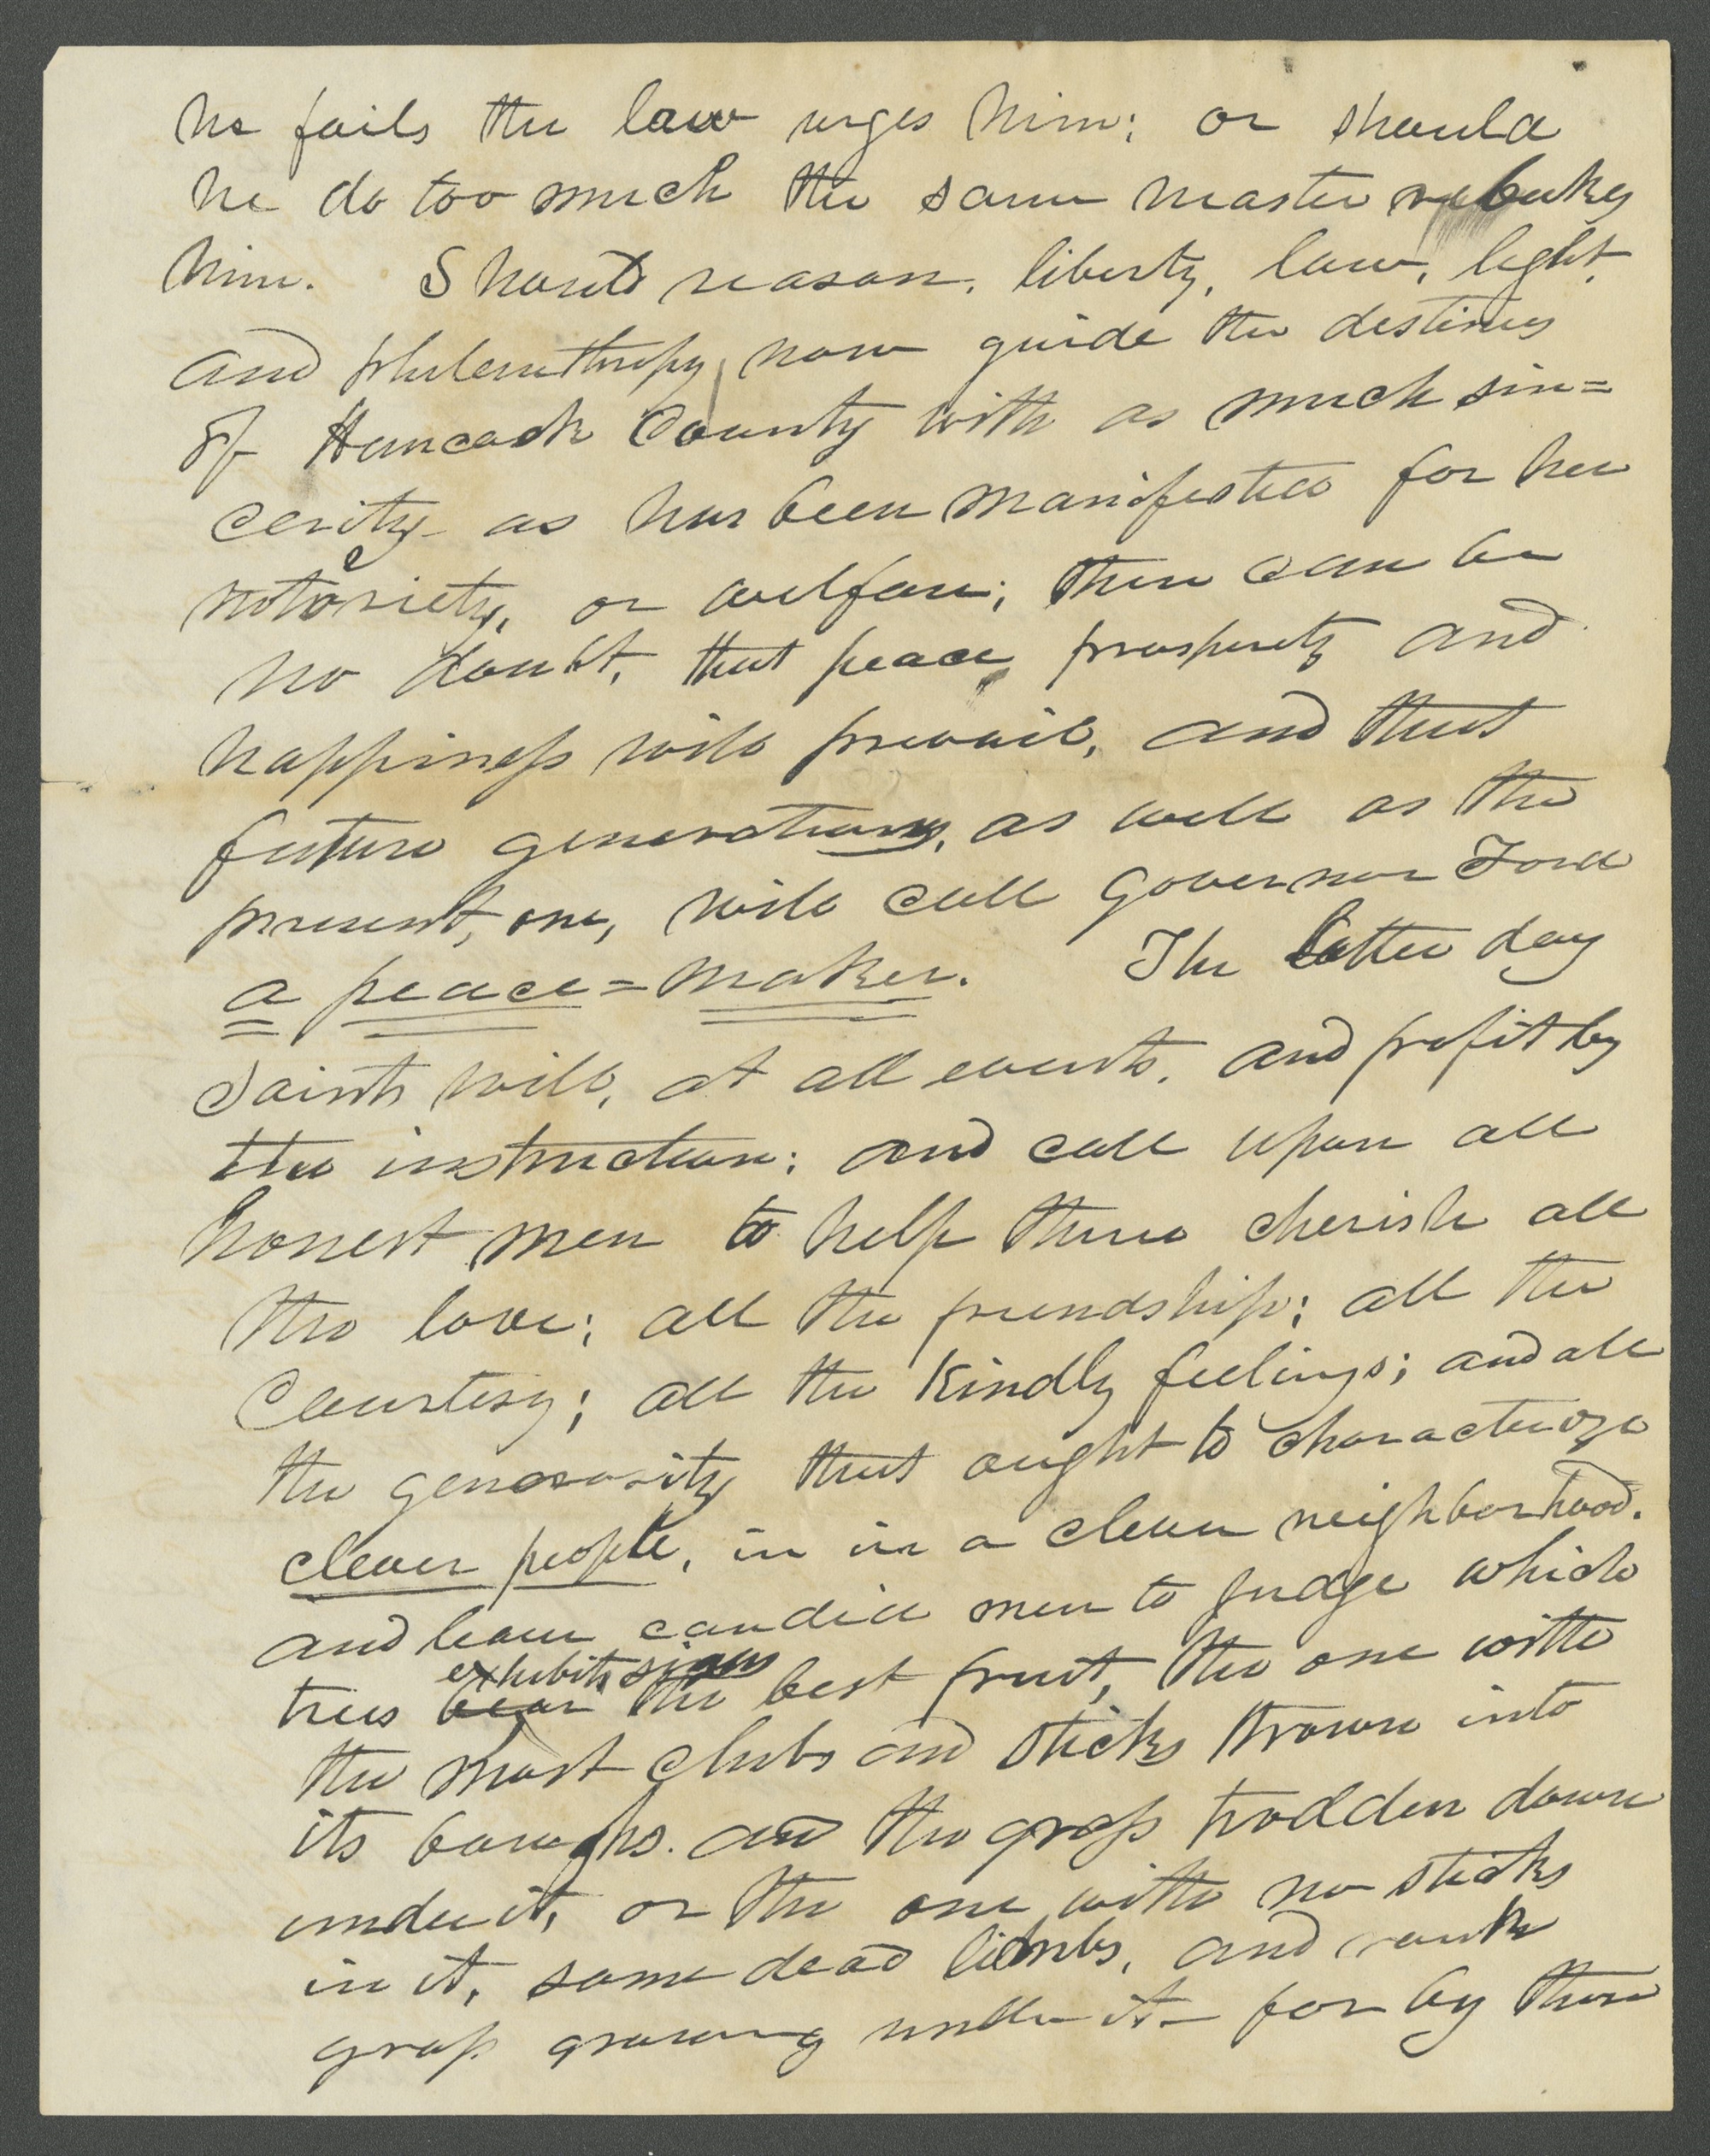 he fails the law urges him; or should
he do too much the same master rebukes
him. Should reason, liberty, law, light,
and philanthropy now guide the destinies
of Hancock County with as much sin=
cerity as has been manifested for her
notoriety, or welfare; there can be
no doubt, that peace, prosperity and
happiness will prevail, and that
future generations, as well as the
present, one, will call Governor Ford
a peace=maker. The latter day
Saints will, at all events, and profit by
the instruction; and call upon all
honest men to help them cherish all
the love; all the friendship; all the
Courtesy; all the Kindly feelings; and all
the generosity that ought to characterize
clever people, in in a clean neighborhood.
and leave candid men to judge which
exhibits signs
trees bear the best fruit, the one with
the most clubs and sticks thrown into
its boughs. and the grass trodden down
under it, or the one with no sticks
in it, some dead limbs, and rank
grass growing under it– for by there